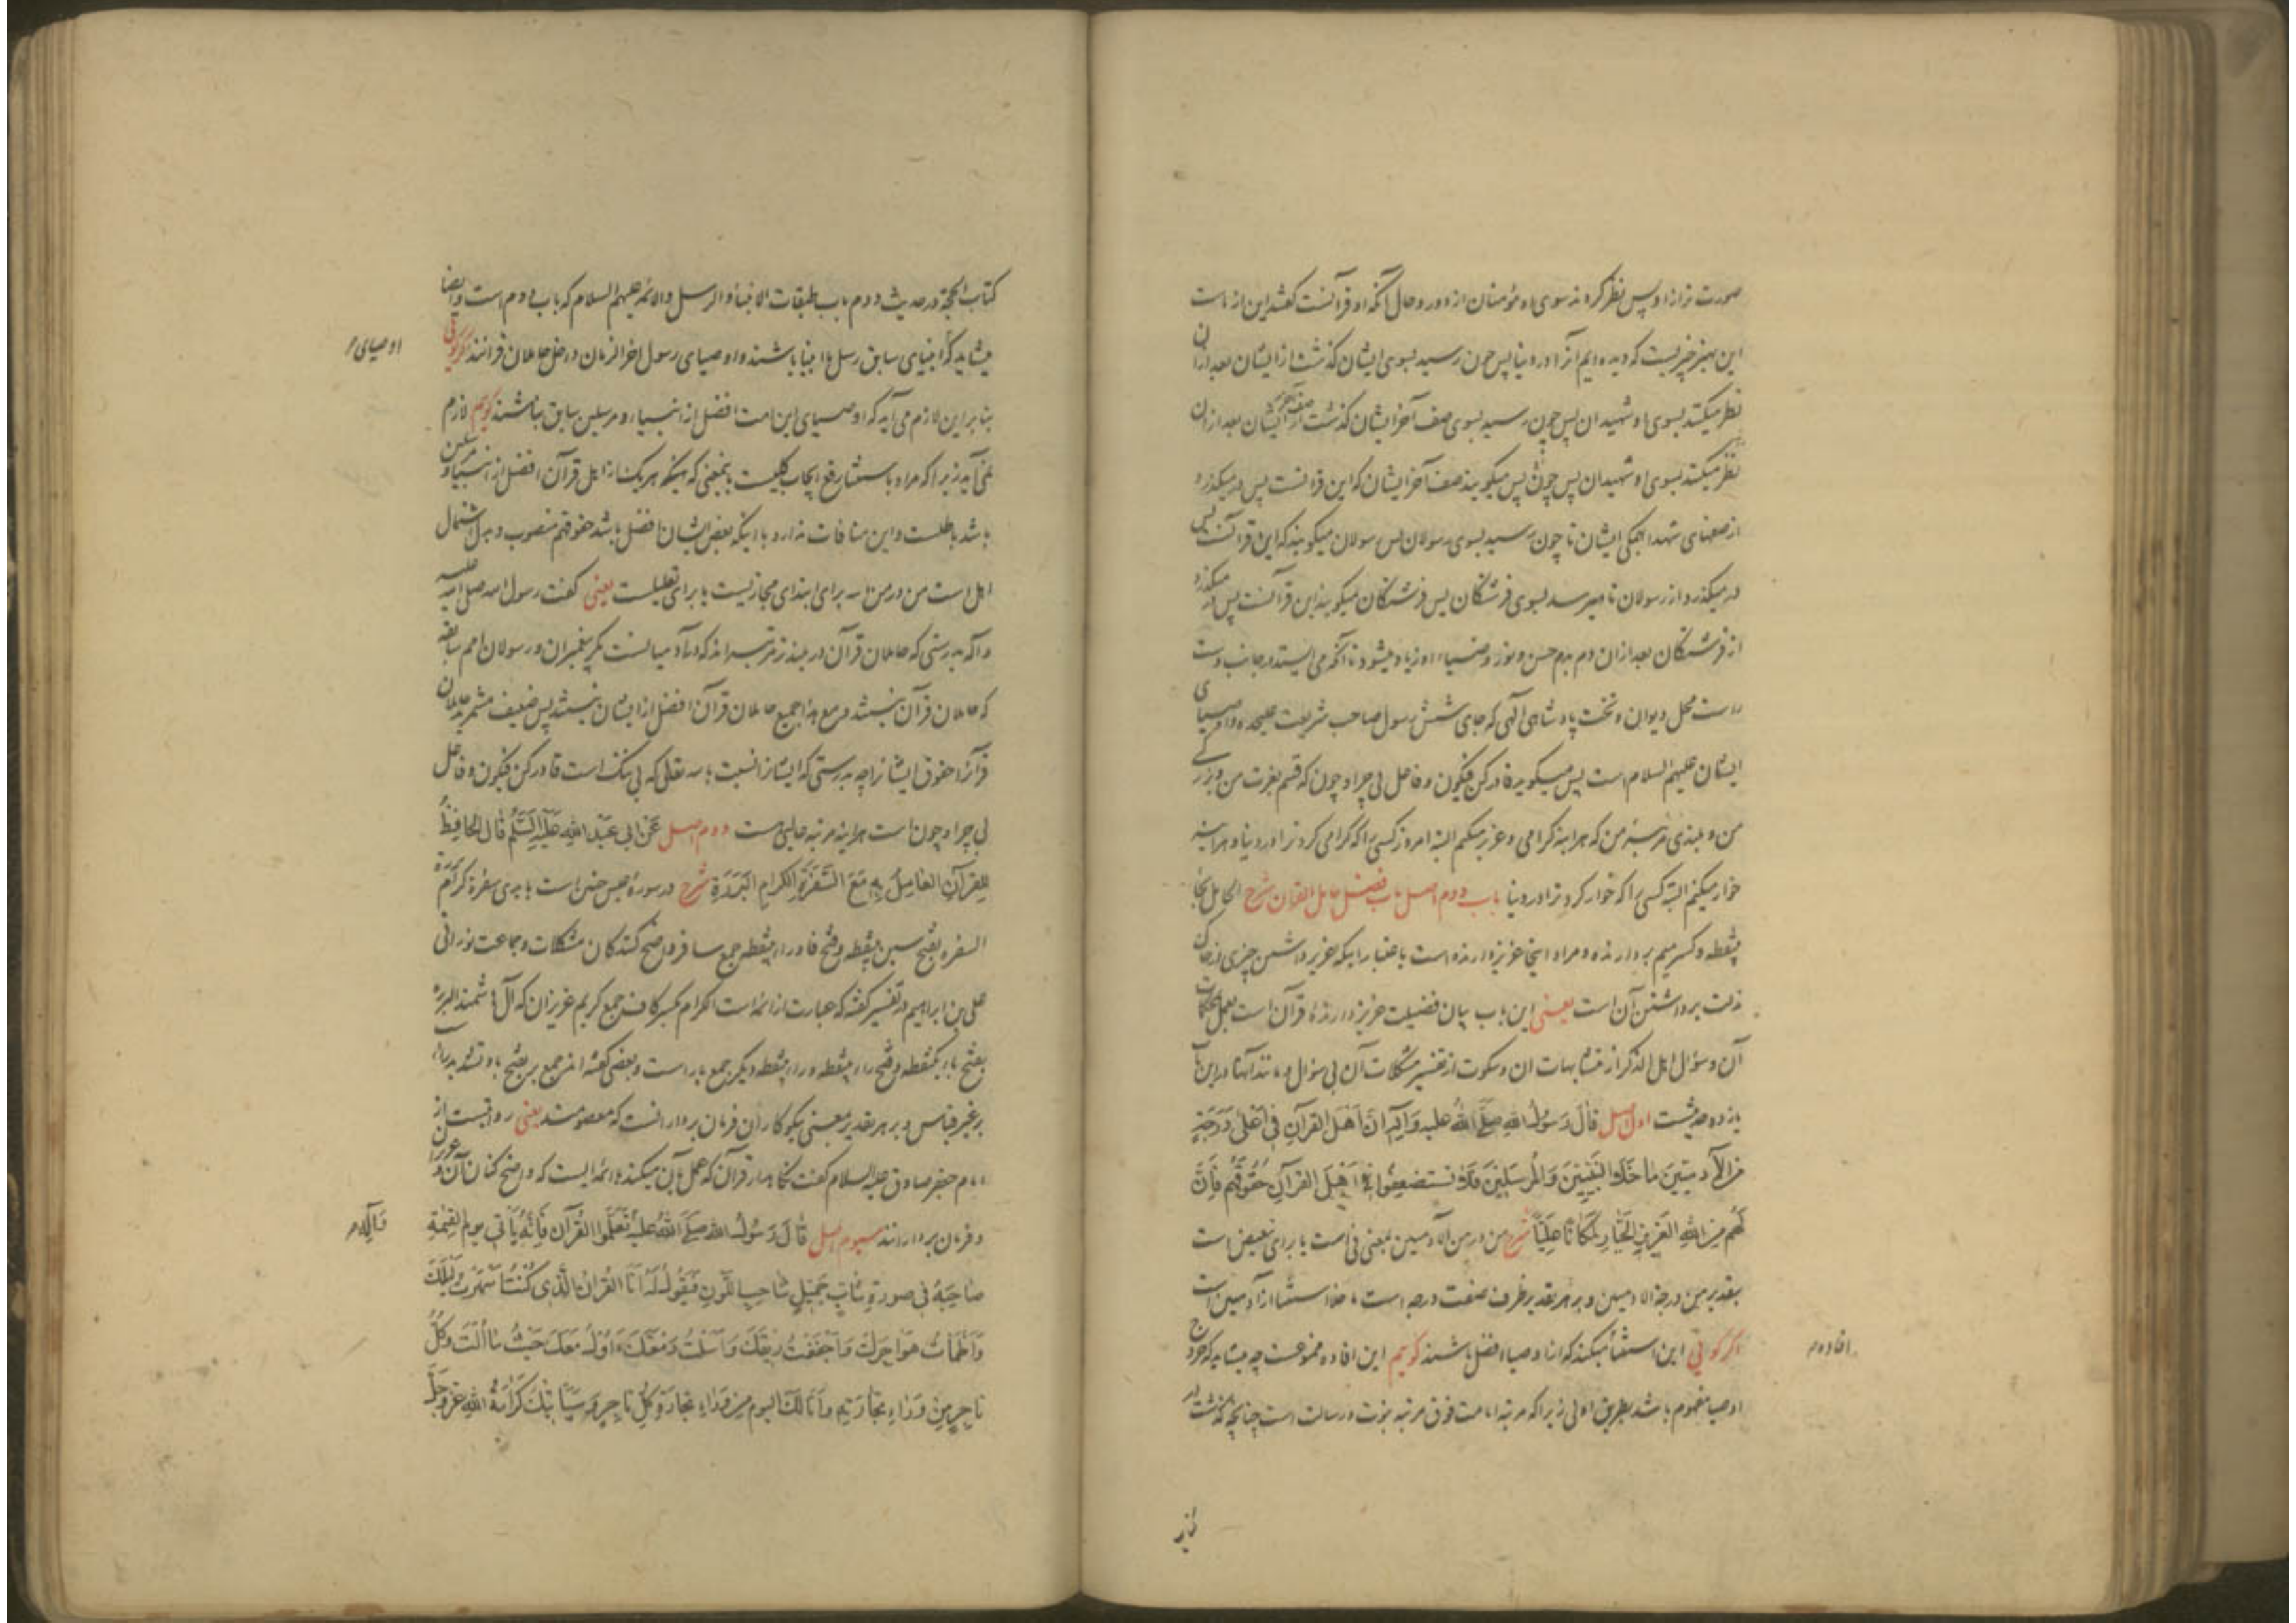 صورت تر از او پس نظر کردند سوی او مؤمنان از دور و حال آنکه او قرآنست گفتند این از ماست
این بهتر چیزیست که دیده‌ایم آنرا در دنیا پس چون رسید بسوی ایشان گذشت از ایشان بعد از آن
نظر میکنند بسوی او شهیدان پس چون رسید بسوی صف آخر ایشان گذشت از صف آخر ایشان بعد از آن
نظر میکنند بسوی او شهیدان پس چون پس میگویند صف آخر ایشان که این قرآنست پس در میگذرد
از صفهای شهدا همگی ایشان تا چون رسید بسوی رسولان پس رسولان میگویند که این قرآنست پس
در میگذرد از رسولان تا میرسد بسوی فرشتگان پس فرشتگان میگویند این قرآنست پس در میگذرد
از فرشتگان بعد از ان دم بدم حسن و نور و ضیاء او زیاد میشود تا آنکه می ایستد در جانب دست
راست محل دیوان و تخت پادشاهی الهی که جای شش رسول صاحب شریعت علیحده و اوصیای
ایشان علیهم السلام است پس میگوید قادر کن فیکون و فاعل بی چرا و چون که قسم بعزت من و بزرگی
من و بلندی مرتبهٔ من که هراینه گرامی و عزیز میکنم البته امروز کسی را که گرامی کرد ترا در دنیا و هراینه
خوار میکنم البته کسی را که خوار کرد ترا در دنیا باب دوم اصل باب فضل حامل القران شرح الحامل بحا
بینقطه و کسر میم بردارنده و مراد اینجا عزیز دارنده است باعتبار اینکه عزیز داشتن چیزی
ذلت برداشتن آن است یعنی این باب بیان فضیلت عزیز دارندهٔ قرآن است بعمل بمحکمات
آن و سؤال اهل الذکر از متشابهات ان و سکوت از تفسیر مشکلات آن بی سؤال و مانند آنها در این باب
یازده حدیثست اول اصل قَالَ رَسُولُ اللهِ صَلَّى اللهُ عليه وَآلِه انَّ اَهْلَ القرآنِ فی اَعْلیٰ دَرَجَةٍ
مِنَ الْآدمِیّینَ ما خَلَا النَّبِیّینَ وَالْمُرْسَلِینَ فَلَا تستضعِفُوا اَهْلَ القرآنِ حُقُوقَهُم فَاِنَّ
لَهُم مِنَ اللهِ العَزیزِ الجَبّارِ لَمَکَانًا عَلِیًّا شرح من در من الآدمیین بمعنی فی است یا برای تبعیض است
بتقدیر من درجة الادمیین و بر هر تقدیر ظرف صفت درجه است ما خلا استثنا از آدمیین است
اگر گوئی این استثنا میکند که از اوصیا افضل باشند گوئیم این افاده ممنوعست چه میشاید که خروج
افاده م
اوصیا مفهوم باشد بطریق اولی زیرا که مرتبهٔ امامت فوق مرتبه نبوت و رسالت است چنانچه گذشت در
کتاب الحجة در حدیث دوم باب طبقات الانبیاء و الرسل والائمه علیهم السلام که باب دوم است و ایضا
میشاید که انبیای سابق رسل یا انبیا باشند و اوصیای رسول اخر الزمان داخل حاملان قرآنند اگر گوئی
اوصیای م
بنا براین لازم می آید که اوصیای این امت افضل از انبیاء و مرسلین سابق نباشند گوئیم لازم
نمی آید زیرا که مراد باستثنا رفع ایجاب کلیست بمعنی که اینکه هر یک از اهل قرآن افضل از انبیا و مرسلین
باشد باطلست و این منافات ندارد با اینکه بعض ایشان افضل باشد حقوقهم منصوب و بدل اشتمال
اهل است من در من الله برای ابتدای مجازیست یا برای تعلیلست یعنی گفت رسول الله صلی الله علیه
و آله بدرستی که حاملان قرآن در بلندتر مرتبه اند که در آدمیانست مگر پیغمبران و رسولان امم سابقه
که حاملان قرآن نیستند و مع هذا جمیع حاملان قرآن افضل از ایشان نیستند پس ضعیف مشمرید حاملان
قرآنرا حقوق ایشانرا چه بدرستی که ایشانرا نسبت بالله تعالی که بی ننگ است قادر کن فیکون و فاعل
بی چرا و چون است هراینه مرتبه عالیی هست دوم اصل عَنْ ابی عَبْدِ اللهِ عَلَیْهِ السَّلَام قال الحافِظُ
لِلقرآنِ العَامِلُ بِهِ مَعَ السَّفَرَةِ الکِرَامِ البَرَرَةِ شرح در سوره عبس چنین است بایدی سفرة کرام بررة
السفره بفتح سین بینقطه و فتح فا و راء بینقطه جمع سافر واضح کنندگان مشکلات و جماعت نورانی
علی بن ابراهیم در تفسیر گفته که عبارت از ائمه است الکرام بکسر کاف جمع کریم عزیزان که آل هاشمند البرره
بفتح باء یکنقطه و فتح راء بینقطه و راء بینقطه دیگر جمع بار است و بعضی گفته اند جمع بر بفتح با و تشدید راست
بر غیر قیاس و بر هر تقدیر بمعنی نیکوکاران فرمان بردارانست که معصومند یعنی روایتست از
امام جعفر صادق علیه السلام گفت نگاهدار قرآن که عمل بآن میکند با ائمه ایست که واضح کنان آن و عزیزان
و فرمان بردارانند سیوم اصل قَالَ رَسُولُ الله صَلَّى اللهُ عَلیه تَعَلَّمُوا القُرآن فَاِنَّهُ یَأتِی یوم القِیٰمَةِ
وَآلِه م
صَاحِبَهُ فی صورةِ شَابٍّ جَمیلٍ شاحِبِ اللَّونِ فَیَقُولُ لَهُ اَنَا القُرآنُ الَّذی کُنْتُ اَسْهَرْتُ لَیْلَکَ
وَاَظْمَأتُ هَوَاجِرَکَ وَاَجْفَفْتُ رِیقَکَ وَاَسَلْتُ دَمْعَتَکَ اَؤُلُ مَعَکَ حَیْثُ مَا اُلْتَ وَکُلُّ
تاجِرٍ مِنْ وَرَاءِ تِجَارَتِهِ وَاَنَا لَکَ الیوم مِن وَرَاءِ تِجَارَةِ کُلِّ تاجِرٍ وَسَیَأتِیکَ کَرَامَةُ اللهِ عَزَّوَجَلَّ